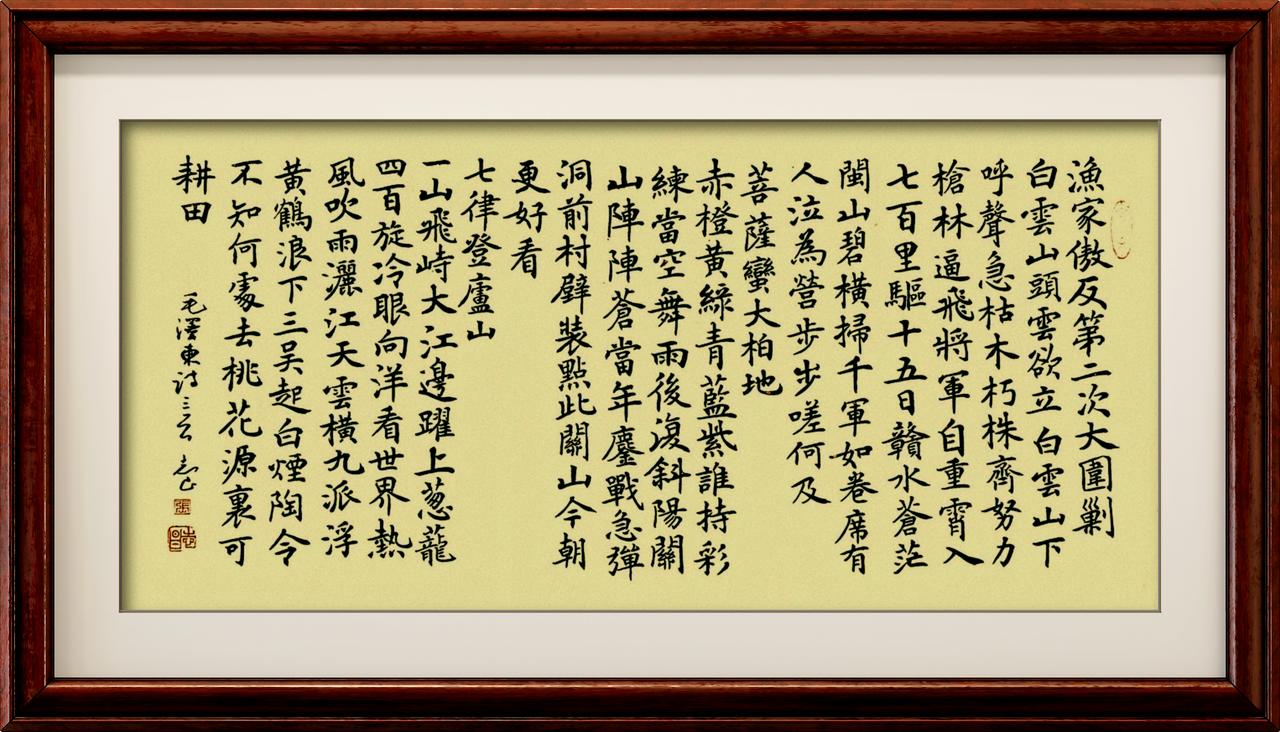 漁家傲反第二次大圍剿
白雲山頭雲欲立白雲山下
呼聲急枯木朽株齊努力
槍林逼飛將軍自重霄入
七百里驅十五日贛水蒼茫
閩山碧橫掃千軍如卷席有
人泣為營步步嗟何及
菩薩蠻大柏地
赤橙黃綠青藍紫誰持彩
練當空舞雨後復斜陽關
山陣陣蒼當年鏖戰急彈
洞前村壁裝點此關山今朝
更好看
七律登廬山
一山飛峙大江邊躍上葱蘢
四百旋冷眼向洋看世界熱
風吹雨灑江天雲橫九派浮
黃鶴浪下三吳起白煙陶令
不知何處去桃花源裏可
耕田
毛澤東詩三首
張